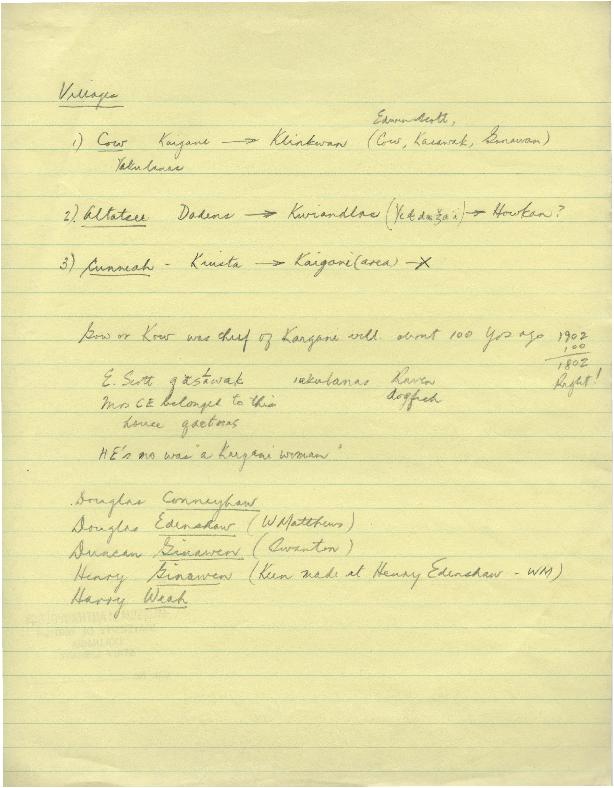 Villages
Edwin Scott,
1) Cow Kaigani → Klinkwan (Cow, Kasawak, Ginawan)
Yakulanas
2) Altatsee Dadens → Kwiandlas → Howkan?
3) Cunneah - Kiusta → Kaigani (area) → X
Gow or Kow was chief of Kaigani vill. about 100 yrs ago 1902
100
1802
Right!
E. Scott yakulanas Raven
dogfish
Mrs CE belonged to this
house
HE's mo was "a Kaigani woman"
Douglas Conneyhaw
Douglas Edenshaw (W Matthews)
Duncan Ginawen (Swanton)
Henry Ginawen (Keen made it Henry Edenshaw - WM)
Harry Weah